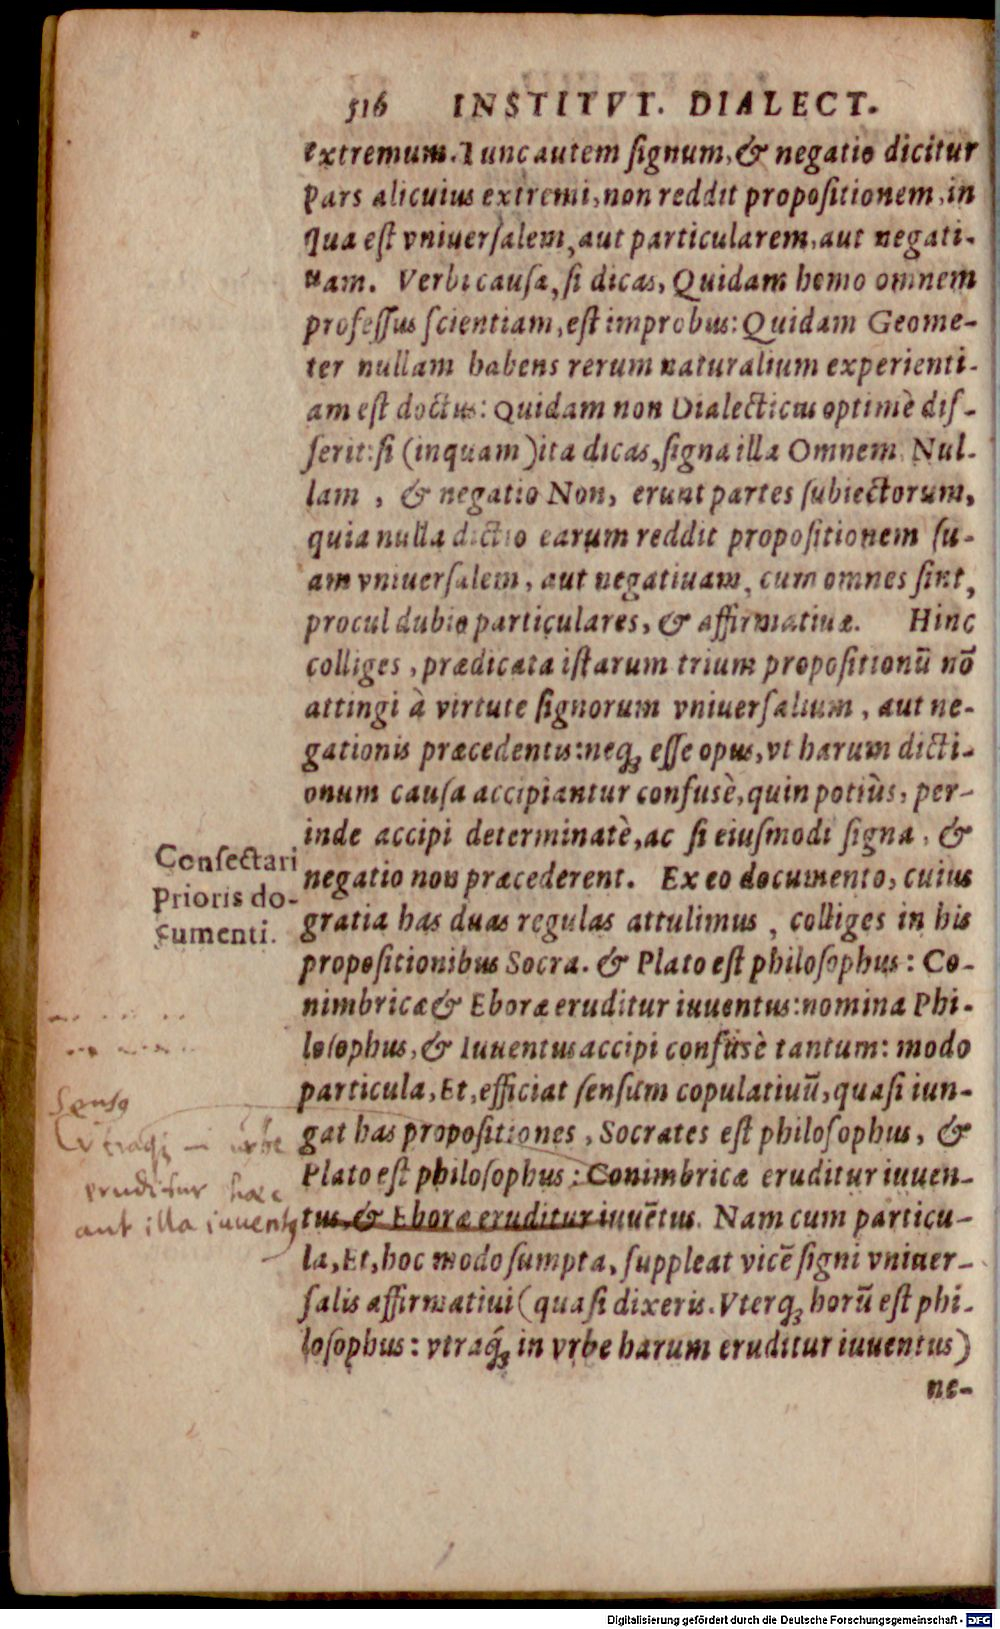 516 INSTITVT. DIALECT.
extremum. Tunc autem ſignum, & negatio dicitur
pars alicuius extremi, non reddit propoſitionem, in
qua eſt vniuerſalem, aut particularem, aut negati-
uam. Verbi cauſa, ſi dicas, Quidam homo omnem
profeſſus ſcientiam, eſt improbus: Quidam Geome-
ter nullam habens rerum naturalium experienti-
am eſt doctus: Quidam non Dialecticus optimè diſ-
ſerit: ſi (inquam) ita dicas, ſigna illa Omnem, Nul-
lam , & negatio Non, erunt partes ſubiectorum,
quia nulla dictio earum reddit propoſitionem ſu-
am vniuerſalem, aut negatiuam, cum omnes ſint,
procul dubio particulares, & affirmatiuæ. Hinc
colliges, prædicata iſtarum trium propoſitionū nō
attingi à virtute ſignorum vniuerſalium, aut ne-
gationis præcedentis: neqꝫ eſſe opus, vt harum dicti-
onum cauſa accipiantur confusè, quin potiùs, per-
inde accipi determinatè, ac ſi eiuſmodi ſigna, &
negatio non præcederent. Ex eo documento, cuius
gratia has duas regulas attulimus, colliges in his
propoſitionibus Socra. & Plato eſt philoſophus: Co-
nimbricæ & Eboræ eruditur iuuentus: nomina Phi-
loſophus, & Iuuentus accipi confusè tantum: modo
particula, Et, efficiat ſenſum copulatiuū, quaſi iun-
gat has propoſitiones, Socrates eſt philoſophus, &
Plato eſt philoſophus: Conimbricæ eruditur iuuen-
tus, & Eboræ eruditur iuuētus. Nam cum particu-
la, Et, hoc modo ſumpta, ſuppleat vicē ſigni vniuer-
ſalis affirmatiui (quaſi dixeris. Vterqꝫ horū eſt phi-
loſophus: vtraqꝫ́ in vrbe harum eruditur iuuentus)
ne-
Conſectari
Prioris do-
cumenti.
Sensꝯ
Vtraqꝫ in urbe
eruditur haec
aut illa iuuentꝯ
Digitalisierung gefördert durch die Deutsche Forschungsgemeinschaft - DFG